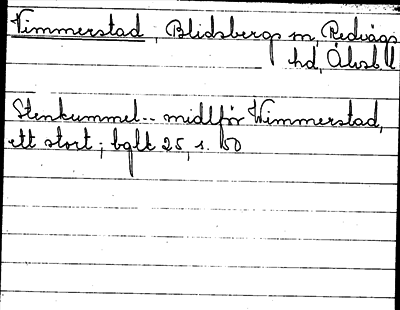 Vimmerstad, Blidsbergs sn, Redvägs
hd, Älvsb. l
Stenkummel.. midt för Wimmerstad,
ett stort; bglt 25, s. 50